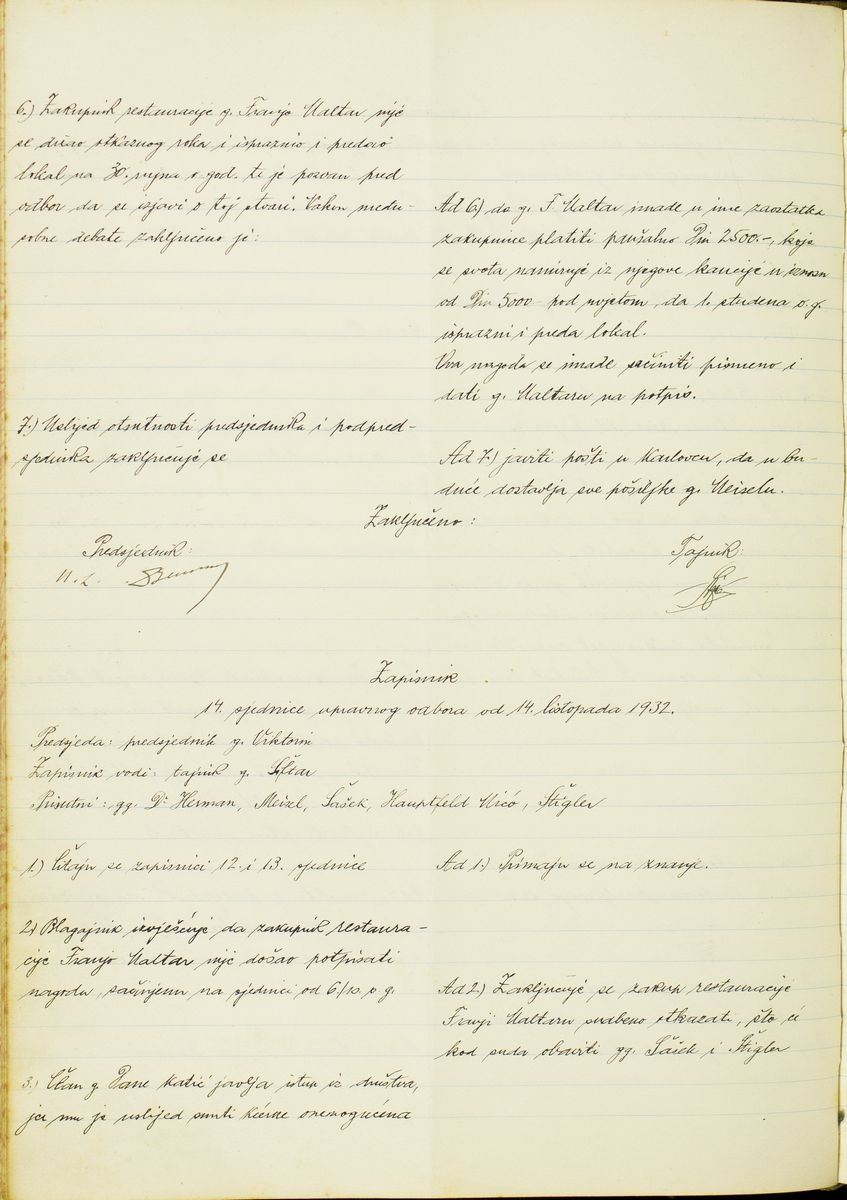 6.) Zakupnik restauracije g. Franjo Maltar nije
se držao otkaznog roka i ispraznio i predao
lokal na 30. rujna o. god. te je pozvan pred
odbor da se izjavi o toj stvari. Nakon među-
sobne debate zaključeno je:
Ad 6) da g. F. Maltar imade u ime zaostatka
zakupnine platiti paušalno Din 2500.-, koja
se svota namiruje iz njegove kaucije u iznosu
od Din 5000.- pod uvjetom, da 1. studena o. g.
isprazni i preda lokal.
Ova nagoda se imade sačiniti pismeno i
dati g. Maltaru na potpis.
7.) Uslijed otsutnosti predsjednika i podpred-
sjednika zaključuje se
Ad 7.) javiti pošti u Karlovcu, da u bu-
duće dostavlja sve pošiljke g. Meiselu.
Zaključeno:
Predsjednik:
Tajnik:
Zapisnik
14. sjednice upravnog odbora od 14. listopada 1932.
Predsjeda: predsjednik g. Viktorin
Zapisnik vodi: tajnik g.
Prisutni: gg. Dr Herman, Meisel, Sašek, Hauptfeld Mićo, Štigler
1.) Čitaju se zapisnici 12. i 13. sjednice
Ad 1.) Primaju se na znanje.
2.) Blagajnik izvješćuje da zakupnik restaura-
cije Franjo Maltar nije došao potpisati
nagodu, sačinjenu na sjednici od 6./10. o. g.
Ad 2.) Zaključuje se zakup restauracije
Franji Maltaru sudbeno otkazati, što će
kod suda obaviti gg. Sašek i Štigler
3.) Član g. Dane Katić javlja istup iz društva,
jer mu je uslijed smrti kćerke onemogućena